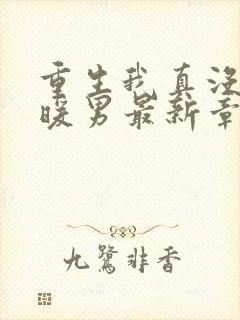 重生我真没
暖男最新章
九鹭非香